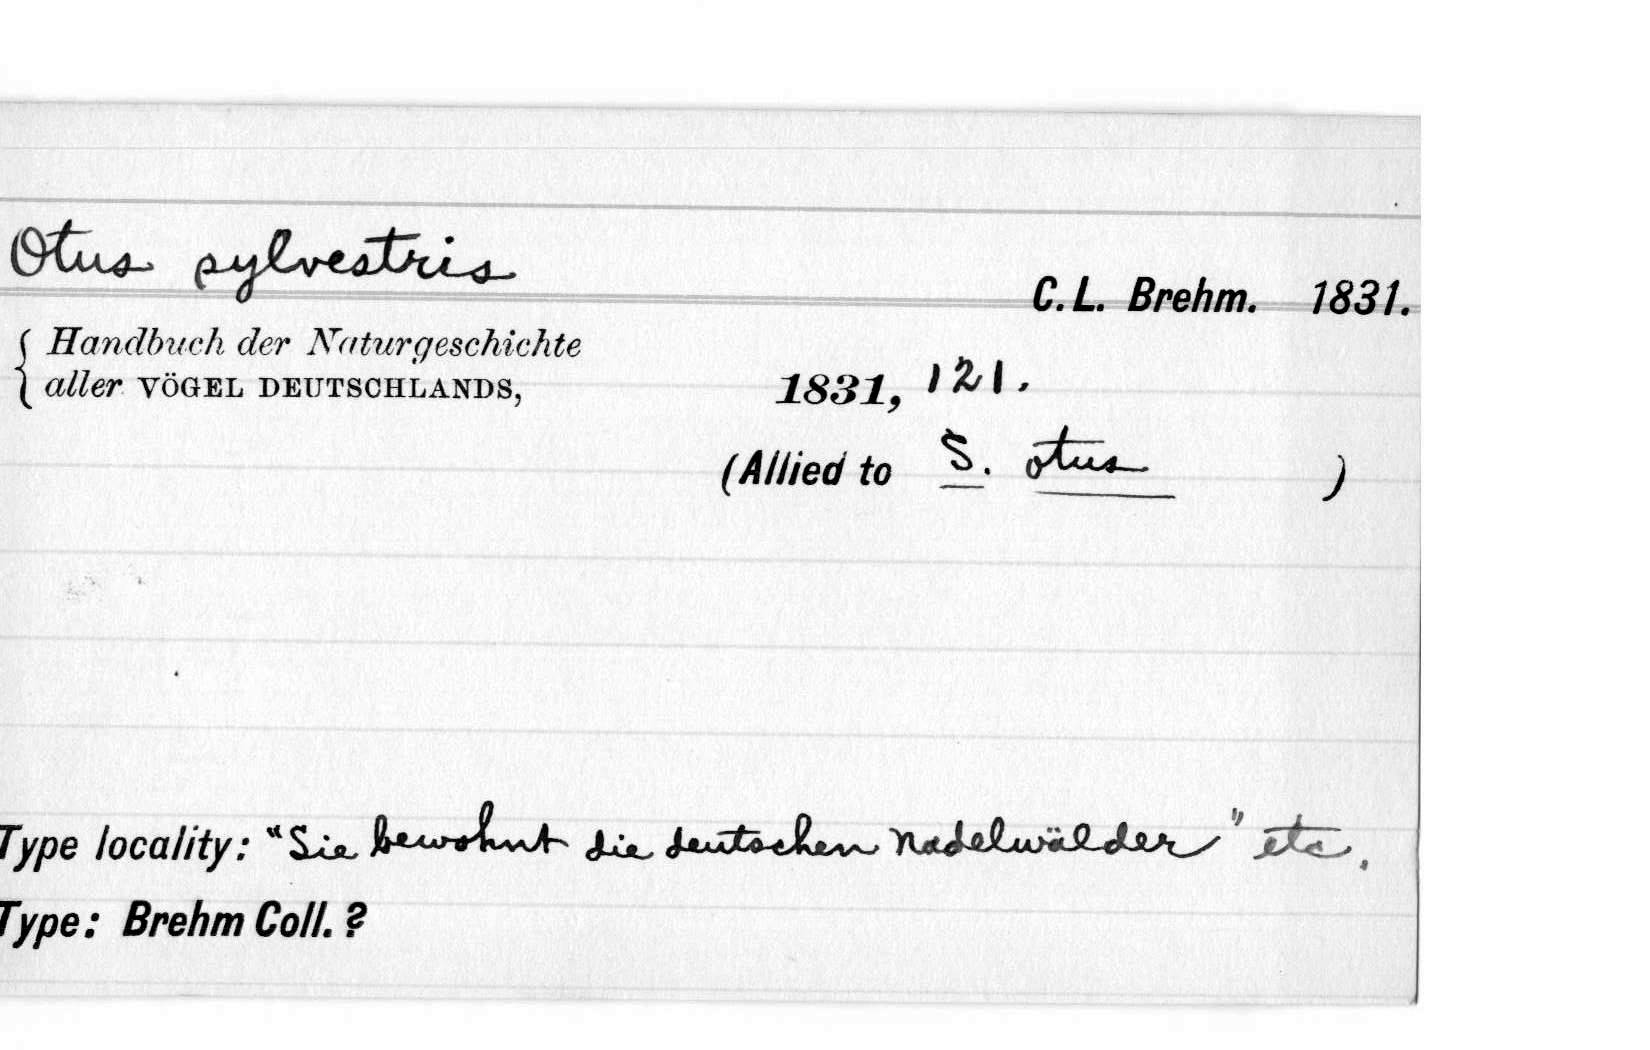 Otus sylvestris
C. L. Brehm. 1831.
Handbuch der Naturgeschichte
aller VÖGEL DEUTSCHLANDS,
1831, 121.
(Allied to S. otus )
Type locality: "Sie bewohnt die deutschen Nadelwälder" etc.
Type: Brehm Coll. ?